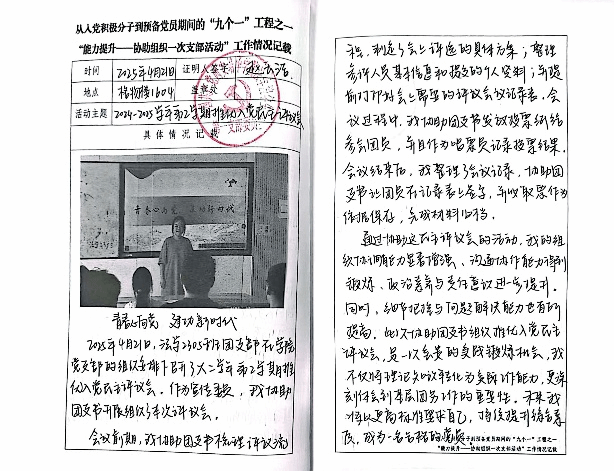 从入党积极分子到预备党员期间的“九个一”工程之一
“能力提升——协助组织一次支部活动”工作情况记载
时间 2025年4月21日 证明人签字
地点 格物楼1604
活动主题 2024-2025学年第2学期推优入党民主评议会
具体情况记载
青春心向党 建功新时代
青春心向党 建功新时代
2025年4月21日,法学2305班团支部在学院
党支部的组织安排下召开了大二学年第2学期推
优入党民主评议会。作为宣传委员,我协助
团支书开展组织了本次评议会。
会议前期,我协助团支书梳理评议流
程,制定了会上评选的具体方案;整理
参评人员基本信息和提交的个人资料;并提
前打印好会上需要的评议会议记录表。会
议过程中,我协助团支书发放投票纸给
参会团员,并且作为唱票员记录投票结果。
会议结束后,我整理了会议记录,协助团
支书让团员在记录表上签字,并收取票作为
依据保存,完成材料归档。
通过协助这次民主评议会的活动,我的组
织协调能力显著增强、沟通协作能力得到
锻炼、政治素养与责任意识进一步提升。
同时,细节把控与问题解决能力也有所
提高。此次协助团支书组织推优入党民主
评议会,是一次宝贵的实践锻炼机会,我
不仅将理论知识转化为实际工作能力,更深
刻体会到基层团务工作的重要性。未来我
将以更高标准要求自己,持续提升综合素
质,成为一名合格的党员。
从入党积极分子到预备党员期间的“九个一”工程之一
“能力提升——协助组织一次支部活动”工作情况记载